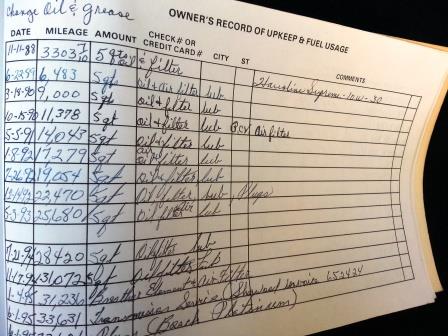 Change Oil & Grease
OWNER'S RECORD OF UPKEEP & FUEL USAGE
DATE MILEAGE AMOUNT CHECK# OR CREDIT CARD# CITY ST COMMENTS
11-11-88 3303 7/10 5 qts oil & filter
6-22-89 6,483 5qt Oil & Air filter lub Havoline Supreme-10w-30
3-18-90 9,000 5qt oil & filter lub
10-15-90 11,378 5qt oil & filter lub PCV Air filter
5-5-91 14,043 5qt oil & filter lub
1-8-92 17,279 5qt oil & filter lub
7-26-92 19,054 5qt oil & filter lub
22,470 5qt Oil filter lub, Plugs
5-3-93 25,680 5qt Oil filter lub
7-21-94 28420 5qt Oil filter lub
11-17-94 31072 5qt Oil filter Lub
31,236 Breather Element & Air Filter
6-1-95 33,631 Transmission Service
(Bosch Platinum)